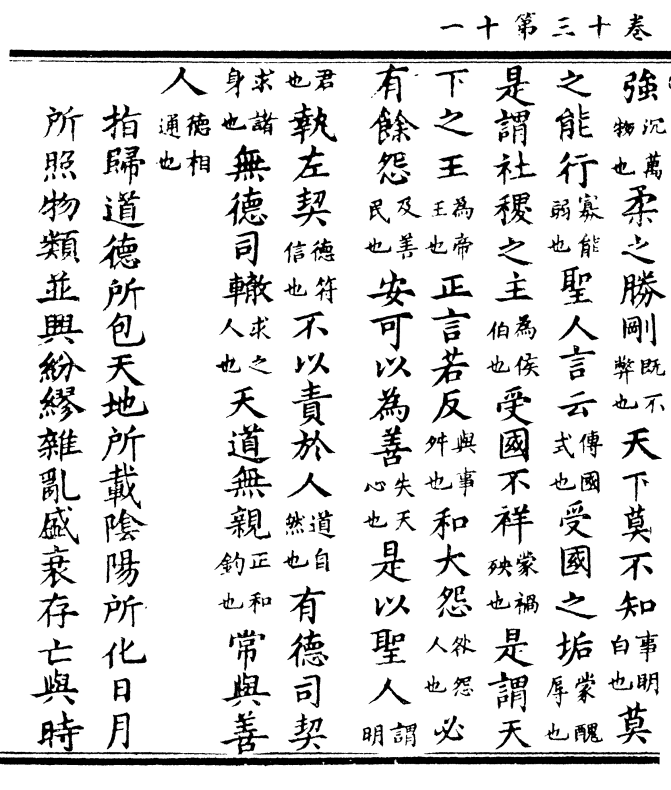 卷十三第十一
強沉萬物也柔之勝剛既不弊也天下莫不知事明白也莫
之能行寡能弱也聖人言云傳國式也受國之垢蒙醜辱也
是謂社稷之主為侯伯也受國不祥蒙禍殃也是謂天
下之王為帝王也正言若反與事舛也和大怨怨人也必
有餘怨及善民也安可以為善失天心也是以聖人謂明
君也執左契德符信也不以責於人道自然也有德司契
求諸身也無德司轍求之人也天道無親正和鈞也常與善
人德相通也
指歸道德所包天地所載陰陽所化日月
所照物類並興紛繆雜亂盛衰存亡與時